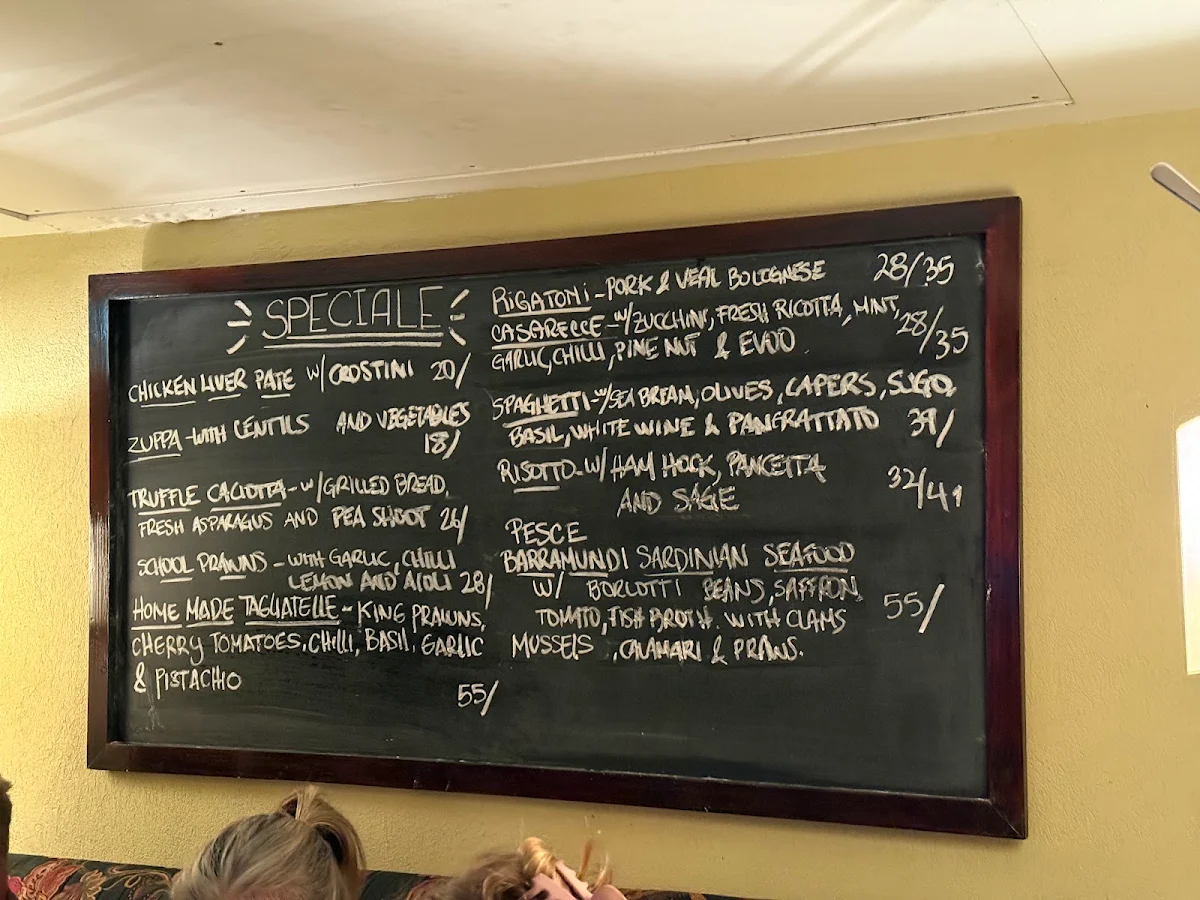 SPECIALE
CHICKEN LIVER PATE W/ CROSTINI 20/
ZUPPA - WITH LENTILS AND VEGETABLES
18/
TRUFFLE CACIOTTA - W/ GRILLED BREAD,
FRESH ASPARAGUS AND PEA SHOOT 26/
SCHOOL PRAWNS - WITH GARLIC, CHILLI
LEMON AND AIOLI 28/
HOME MADE TAGLIATELLE - KING PRAWNS,
CHERRY TOMATOES, CHILLI, BASIL, GARLIC
& PISTACHIO
55/
RIGATONI - PORK & VEAL BOLOGNESE 28/35
CASARECCE - W/ ZUCCHINI, FRESH RICOTTA, MINT,
GARLIC, CHILLI, PINE NUT & EVOO 28/35
SPAGHETTI - W/ SEA BREAM, OLIVES, CAPERS, SUGO,
BASIL, WHITE WINE & PANGRATTATO 39/
RISOTTO - W/ HAM HOCK, PANCETTA
AND SAGE 32/41
PESCE
BARRAMUNDI SARDINIAN SEAFOOD
W/ BORLOTTI BEANS, SAFFRON,
TOMATO, FISH BROTH. WITH CLAMS 55/
MUSSELS, CALAMARI & PRAWNS.